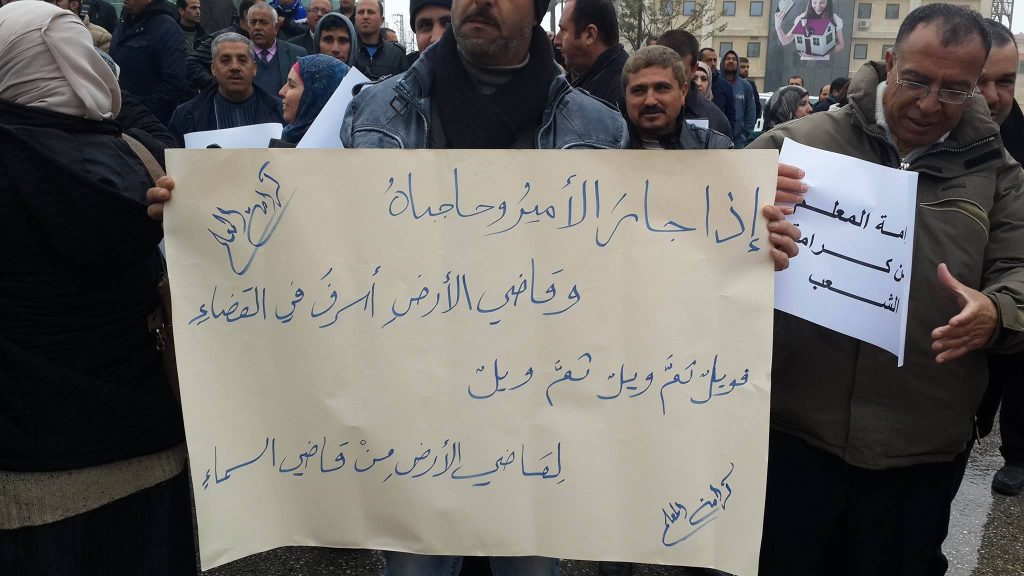 إذا جارَ الأميرُ وحاجباهُ
وقاضي الأرضِ أسرفَ في القضاءِ
فويلٌ ثمَّ ويلٌ ثمَّ ويلٌ
لِقاضي الأرضِ مِنْ قاضي السماءِ
كرامتي المعلم
امة المعلم
ن كرامة
الشعب